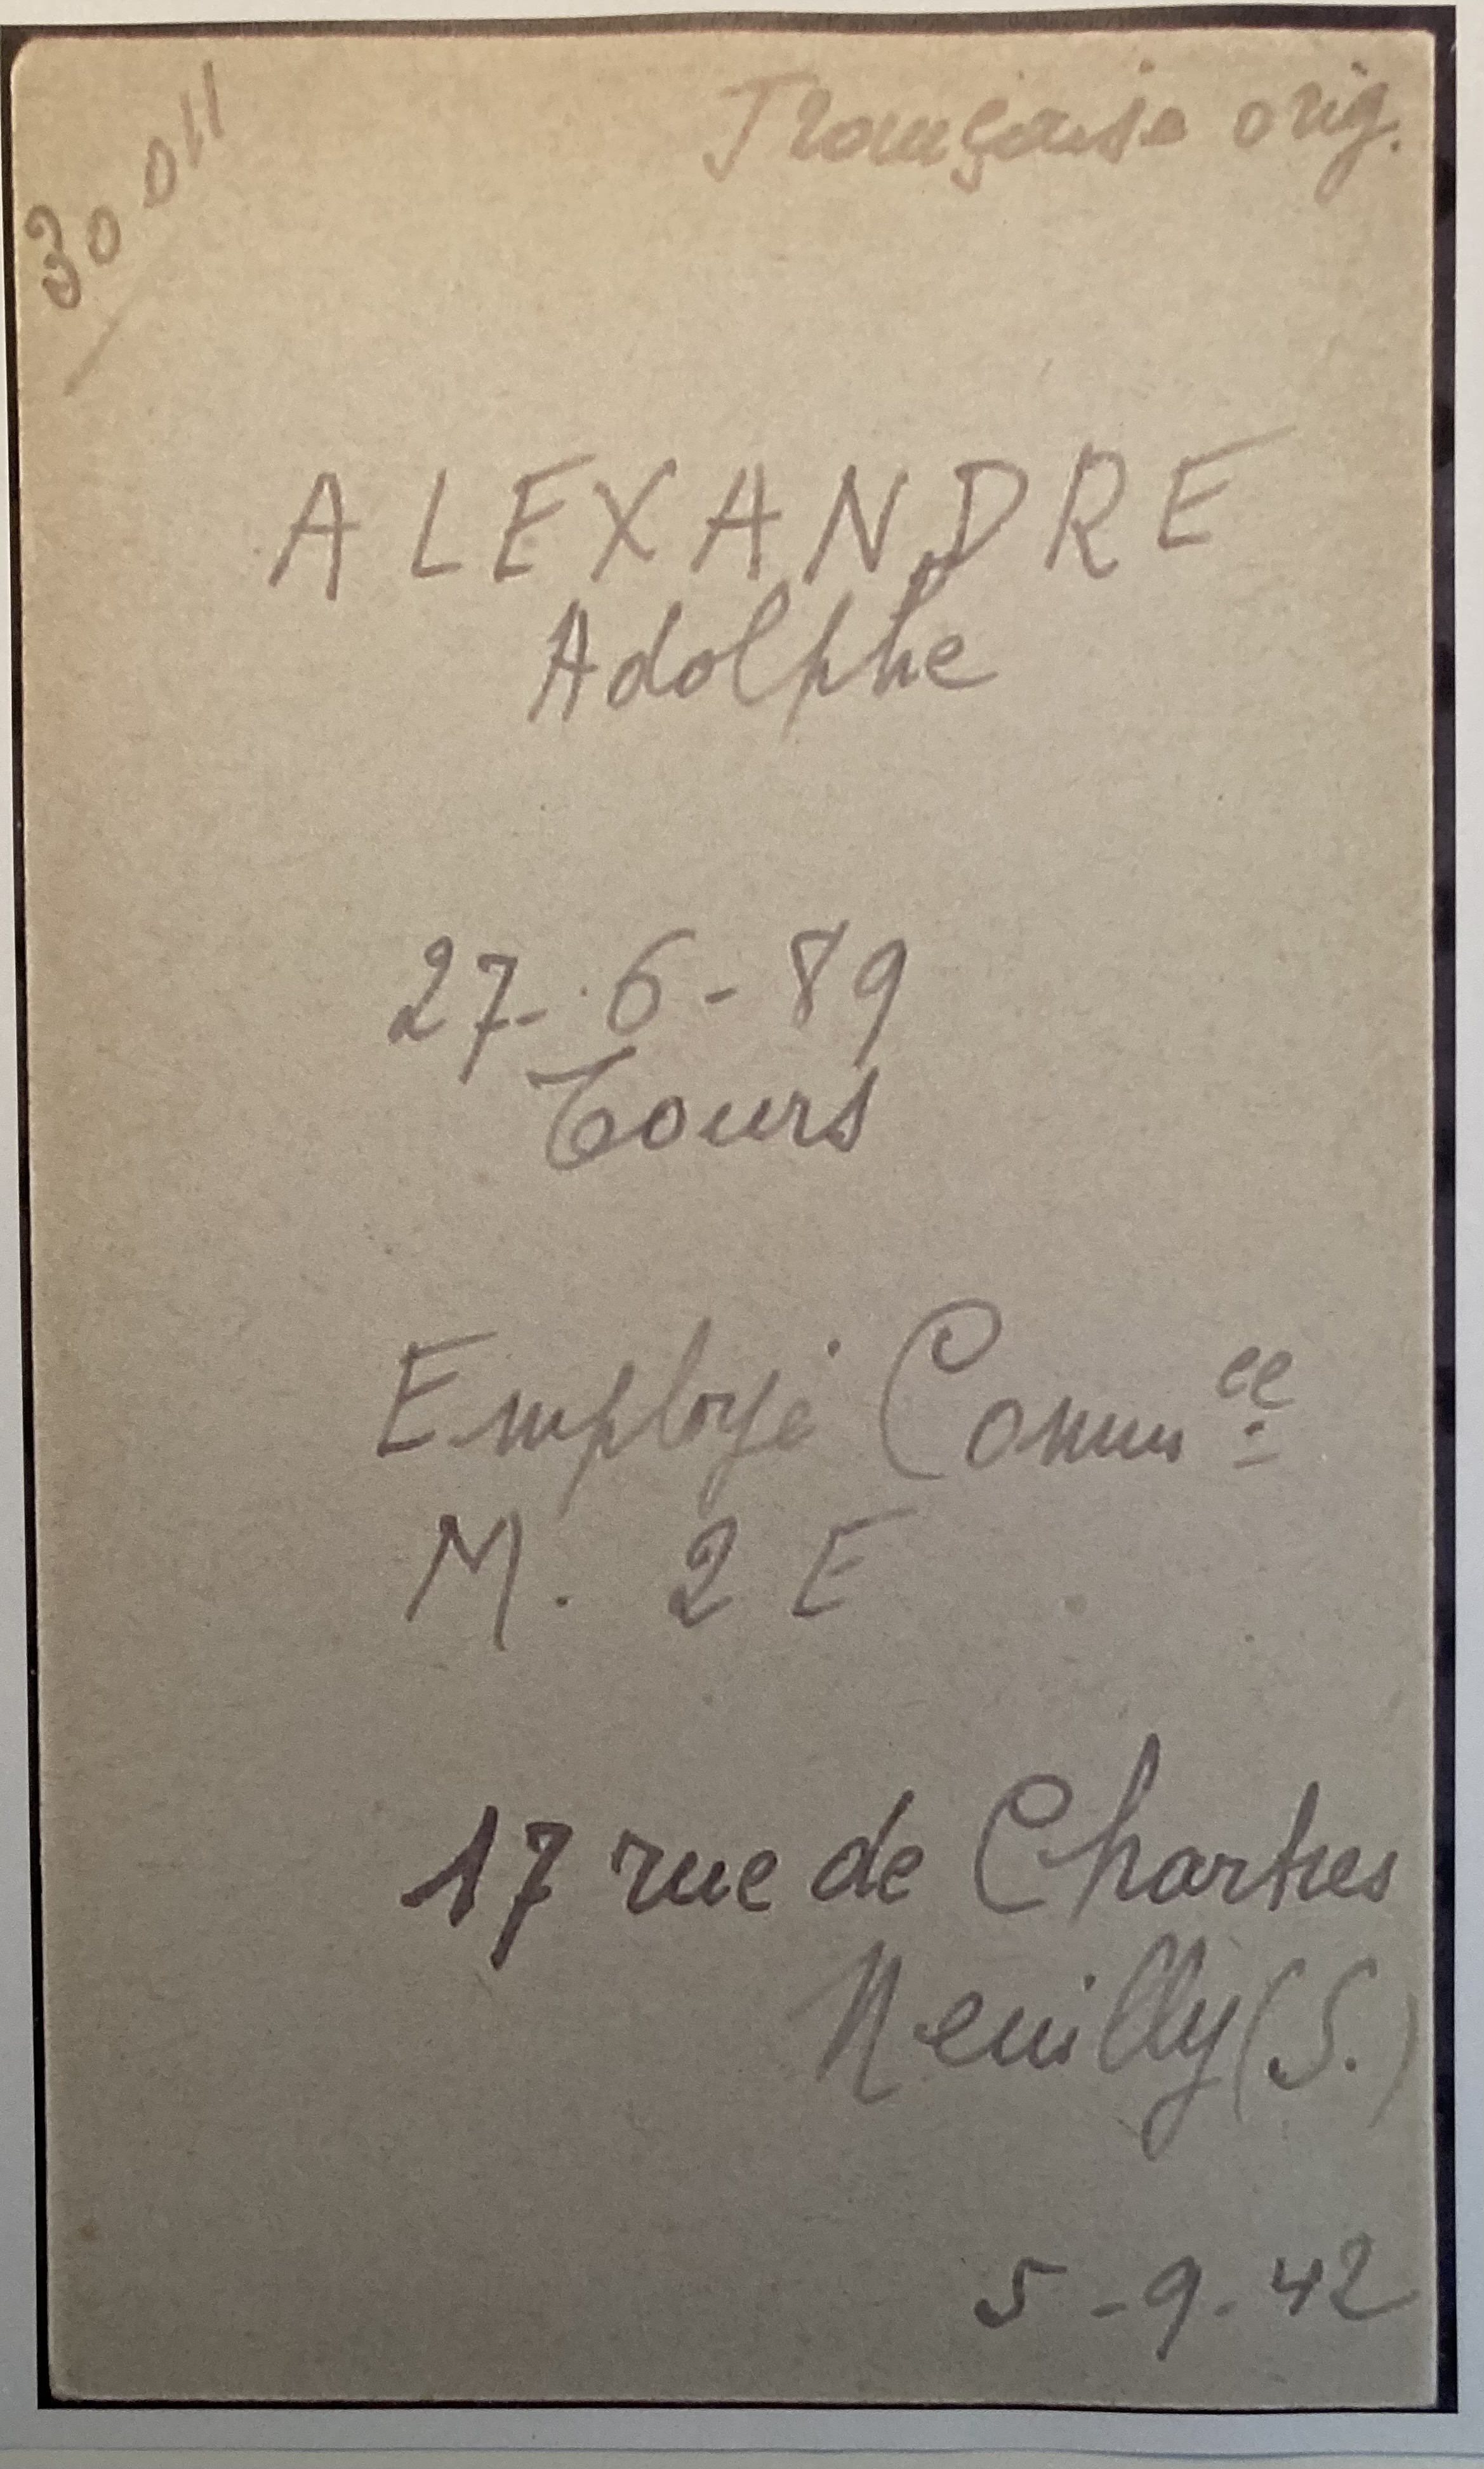 30 011
Française orig.
ALEXANDRE
Adolphe
27-6-89
Tours
Employé Comm ce
M. 2 E
17 rue de Chartres
Neuilly (S.)
5-9-42